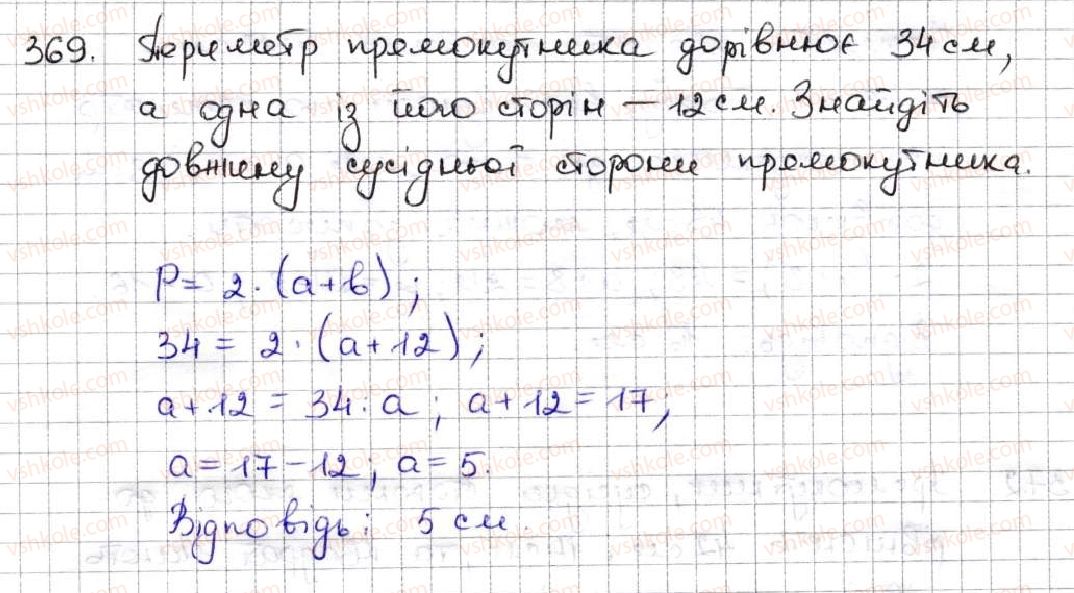 369. Периметр прямокутника дорівнює 34 см,
а одна із його сторін – 12 см. Знайдіть
довжину сусідньої сторони прямокутника.
P = 2 · (a + b);
34 = 2 · (a + 12);
a + 12 = 34 : a; a + 12 = 17;
a = 17 – 12; a = 5.
Відповідь: 5 см.